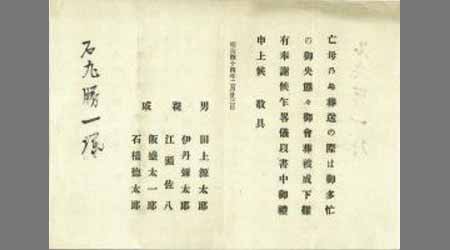 亡母乃ぬ葬送の際は御多忙
の御央態々御會葬被成下難
有奉謝候乍畧儀以書中御禮
申上候　敬具
明治四十四年二月廿三日
男　田上源太郎
親戚　伊丹彌太郎
江頭佐八
飯盛太一郎
石橋德太郎
石丸勝一殿